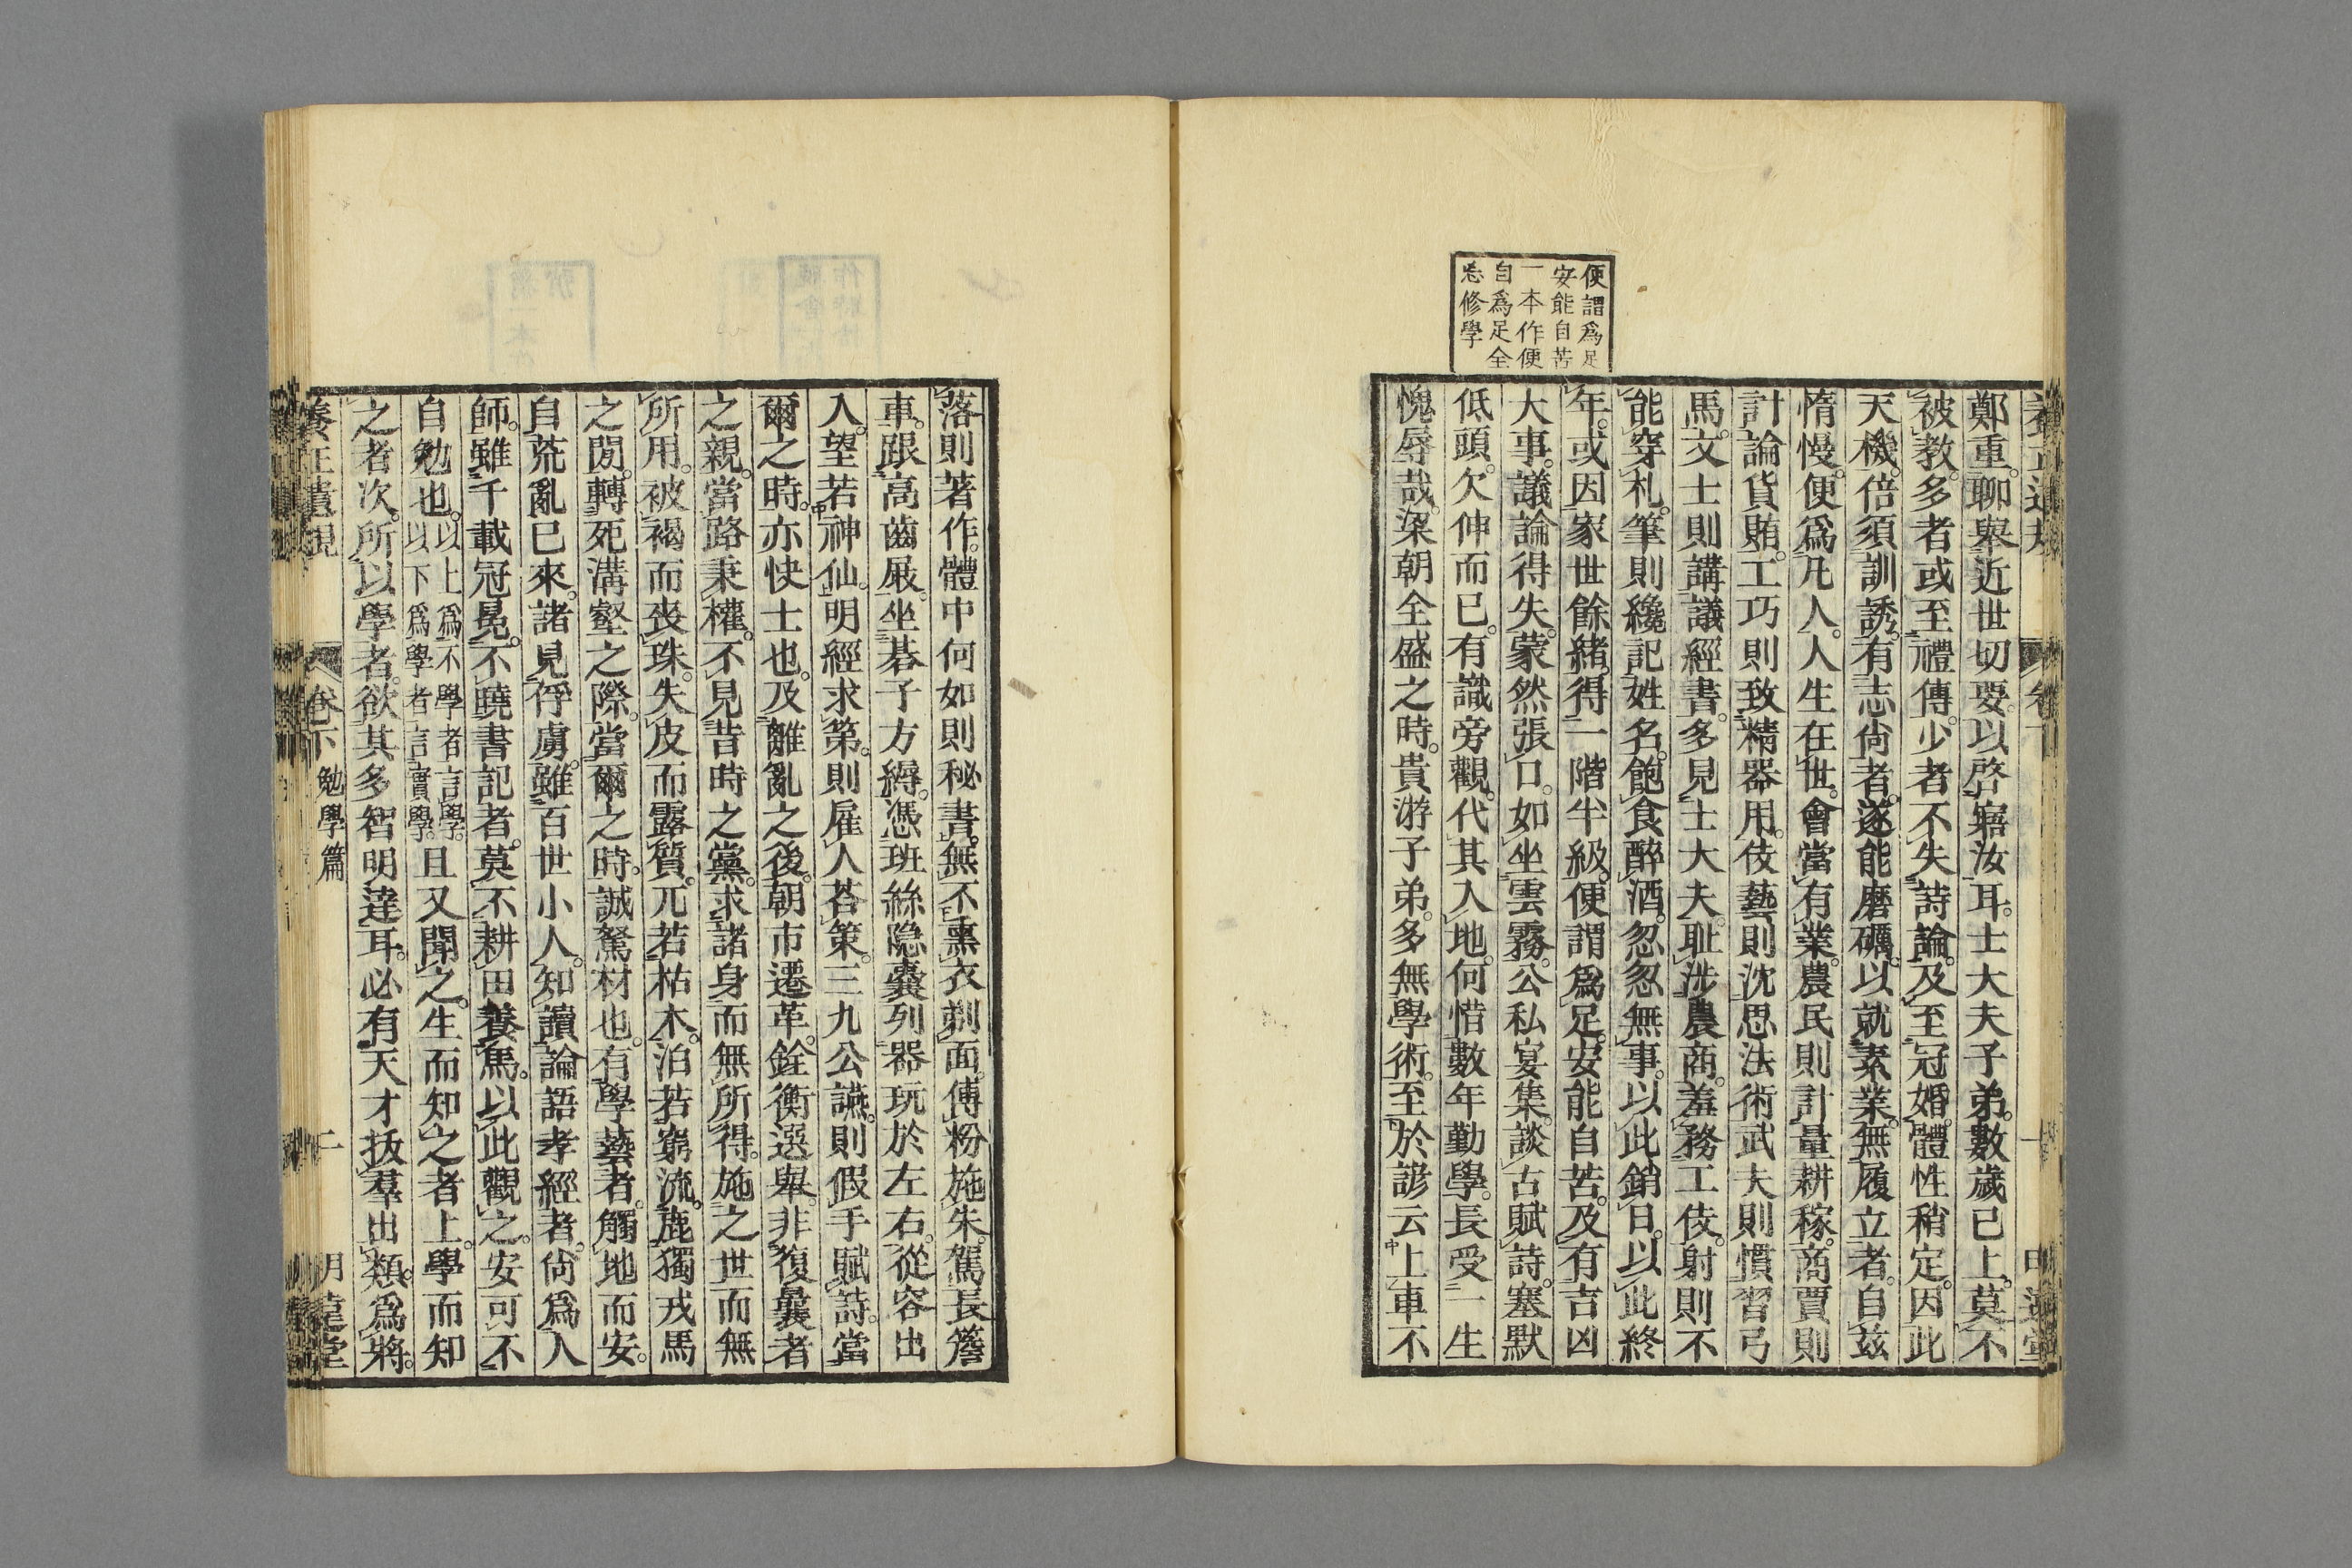 便謂爲足
安能自苦
一本作便
自爲足全
忘修學
鄭重。聊舉近世切要。以啓寤汝耳。士大夫子弟。數歲已上。莫不
被教。多者或至禮傳。少者不失詩論。及至冠婚。體性稍定。因此
天機。倍須訓誘。有志尙者。遂能磨礪。以就素業。無履立者。自玆
惰慢。便爲凡人。人生在世。會當有業。農民則計量耕稼。商賈則
計論貨賄。工巧則致精器用。伎藝則沈思法術。武夫則慣習弓
馬。文士則講議經書。多見士大夫。耻涉農商。羞務工伎。射則不
能穿札。筆則纔記姓名。飽食醉酒。忽忽無事。以此銷日。以此終
年。或因家世餘緖。得一階半級。便謂爲足。安能自苦。及有吉凶
大事。議論得失。蒙然張口。如坐雲霧。公私宴集。談古賦詩。塞默
低頭。欠伸而已。有識旁觀。代其入地。何惜數年勤學。長受一生
愧辱哉。梁朝全盛之時。貴游子弟。多無學術。至於諺云上車不
落則著作。體中何如則秘書。無不熏衣剃面。傅粉施朱。駕長簷
車。跟高齒屐。坐棊子方縟。憑班絲隐囊。列器玩於左右。從容出
入。望若神仙。明經求第。則雇人荅策。三九公讌。則假手賦詩。當
爾之時。亦快士也。及離亂之後。朝市遷革。銓衡選舉。非復曩者
之親。當路秉權。不見昔時之黨。求諸身而無所得。施之世而無
所用。被褐而喪珠。失皮而露質。兀若枯木。泊若窮流。鹿獨戎馬
之閒。轉死溝壑之際。當爾之時。誠駑材也。有學藝者。觸地而安。
自荒亂已來。諸見俘虜。雖百世小人。知讀論語孝經者。尙爲人
師。雖千載冠冕。不曉書記者。莫不耕田養馬。以此觀之。安可不
自勉也。以上爲不學者言學。以下爲學者言實學。且又聞之。生而知之者上。學而知
之者次。所以學者。欲其多智明達耳。必有天才拔羣出類。爲將。
養正遺規
卷下
勉學篇
二